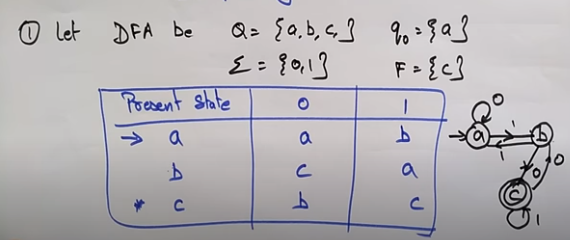 ① Let DFA be Q = {a, b, c,} q₀ = {a}
Σ = {0, 1} F = {c}
Present State 0 1
→ a a b
b c a
* c b c
0
a 1 b
1
0 0
c
1